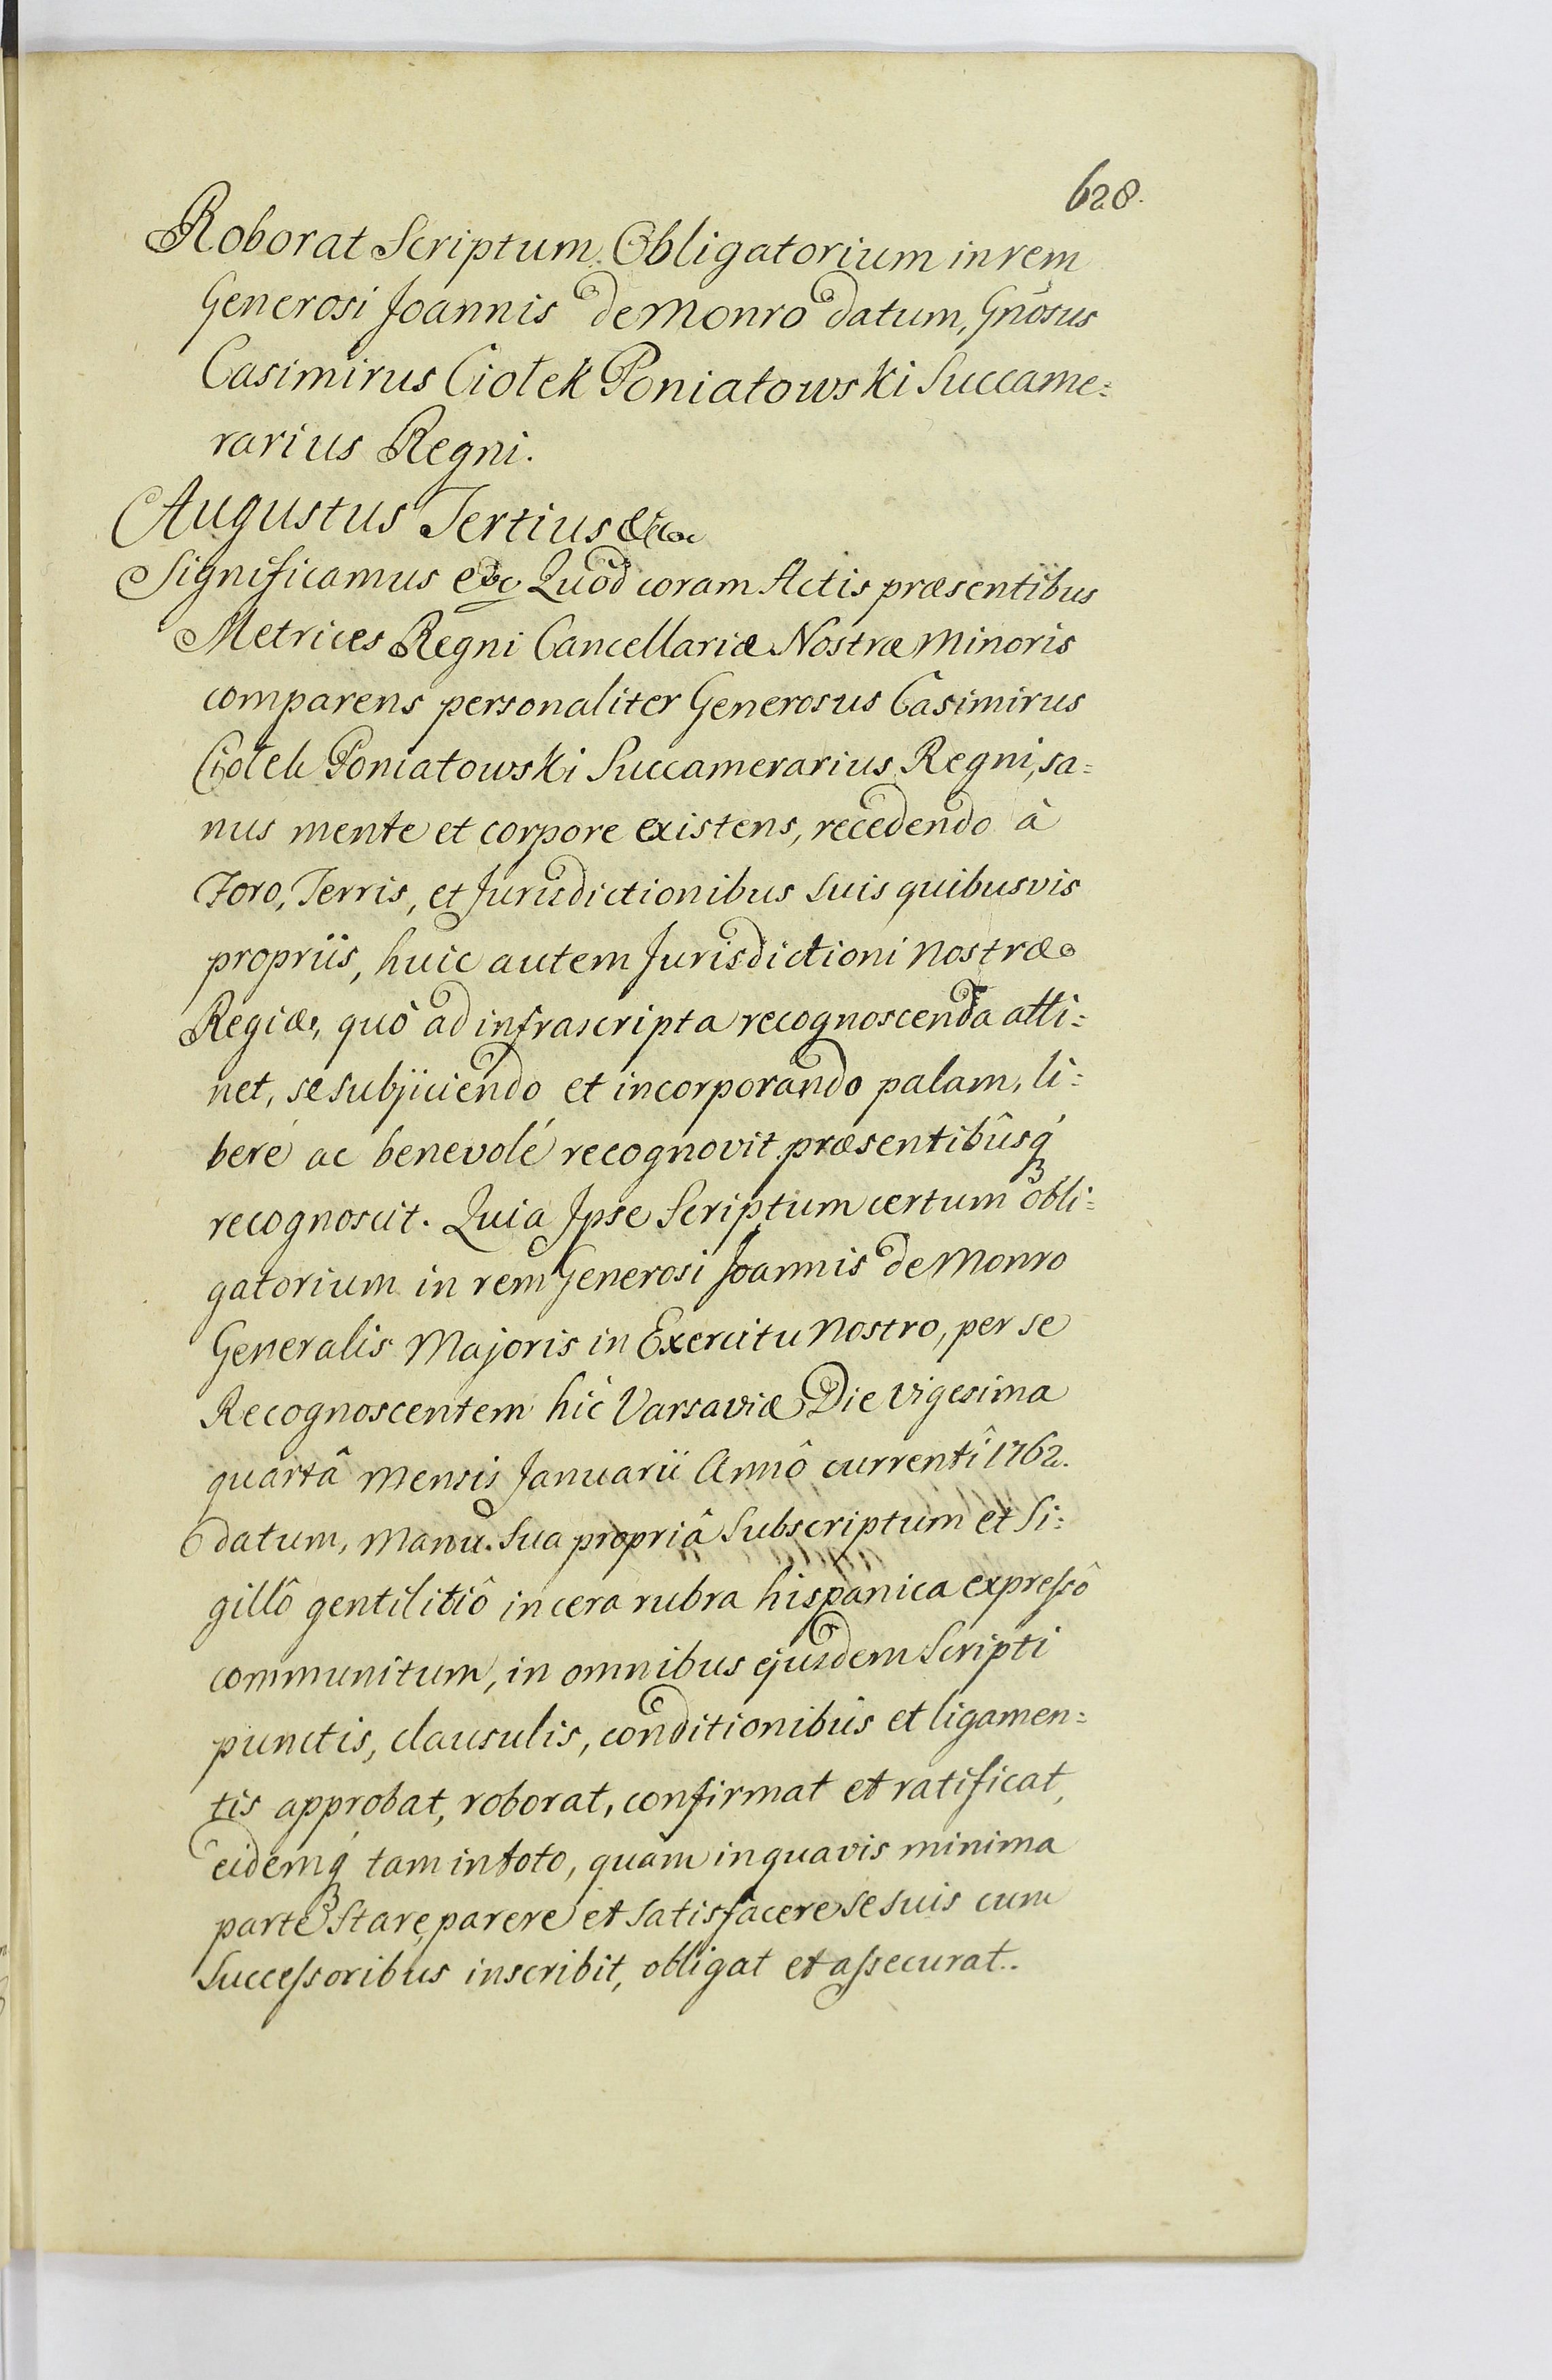 628.
Roborat Scriptum Obligatorium in rem
Generosi Joannis de Monro datum, Gnōsus
Casimirus Ciołek Poniatowski Succame=
rarius Regni.
Augustus Tertius &c
Significamus &c Quòd coram Actis præsentibus
Metrices Regni Cancellariæ Nostræ Minoris
comparens personaliter Generosus Casimirus
Ciołek Poniatowski Succamerarius Regni, sa=
nus mente et corpore existens, recedendo à
Foro, Terris, et Jurisdictionibus suis quibusvis
propriis, huic autem Jurisdictioni Nostræ
Regiæ, quò ad infrascripta recognoscenda atti=
net, se subjiciendo et incorporando palam, li=
berè ac benevolé recognovit præsentibûsq́
recognoscit. Quia Ipse Scriptum certum obli=
gatorium in rem Generosi Joannis de Monro
Generalis Majoris in Exercitu Nostro, per se
Recognoscentem hìc Varsaviæ Die vigesima
quartâ Mensis Januarii Annô currenti 1762.
datum, Manu sua propriâ Subscriptum et Si=
gillô gentilitiô in cera rubra hispanica expressô
communitum, in omnibus ejusdem Scripti
punctis, clausulis, conditionibus et ligamen=
tis approbat, roborat, confirmat et ratificat,
eidemq́ tam in toto, quàm in quavis minima
parte Stare, parere et satisfacere se suis cum
Successoribus inscribit, obligat et assecurat.